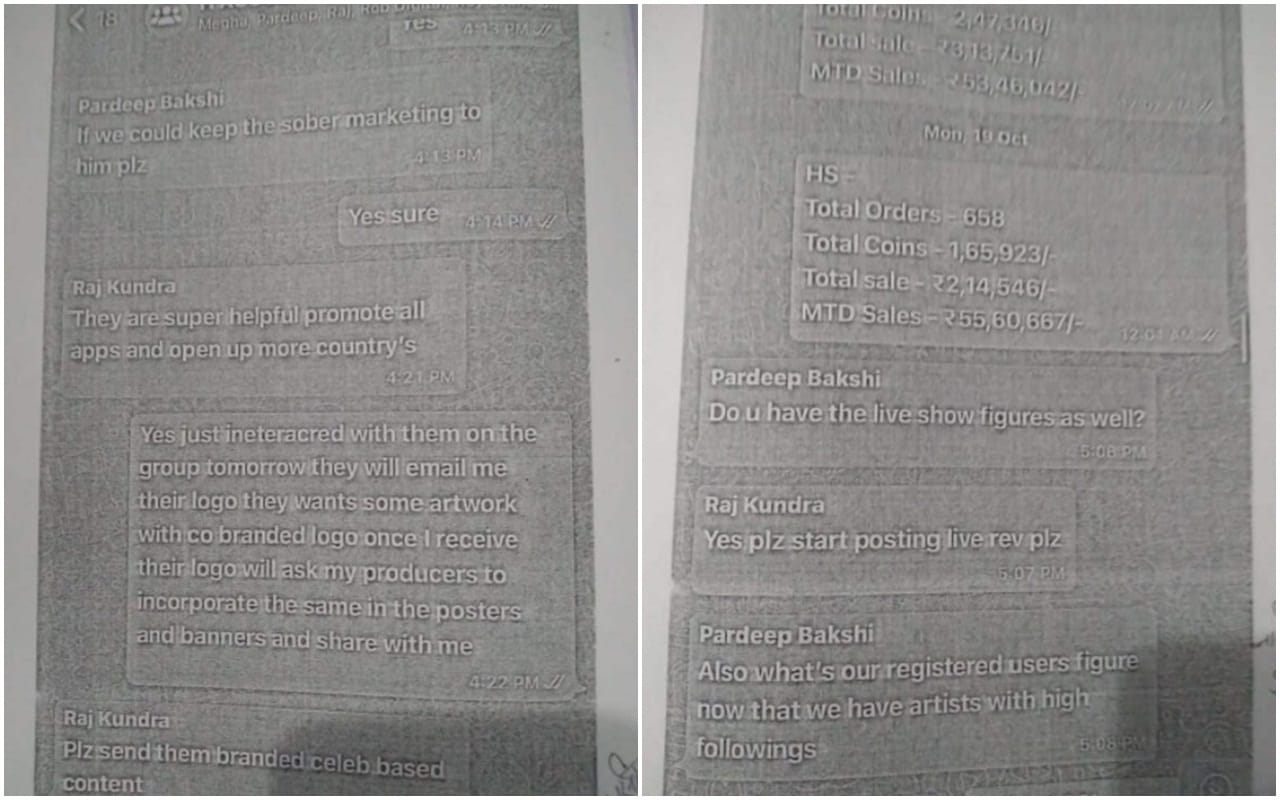 18
Mepha, Pardeep, Raj, Rob
Yes 4:13 PM
Pardeep Bakshi
If we could keep the sober marketing to
him plz
4:13 PM
Yes sure 4:14 PM
Raj Kundra
They are super helpful promote all
apps and open up more country's
4:21 PM
Yes just ineteracred with them on the
group tomorrow they will email me
their logo they wants some artwork
with co branded logo once I receive
their logo will ask my producers to
incorporate the same in the posters
and banners and share with me
4:22 PM
Raj Kundra
Plz send them branded celeb based
content
Total Coins - 2,47,346/-
Total sale - ₹3,13,751/-
MTD Sales - ₹53,46,042/-
Mon, 19 Oct
HS -
Total Orders - 658
Total Coins - 1,65,923/-
Total sale - ₹2,14,546/-
MTD Sales - ₹55,60,667/-
12:01 AM
Pardeep Bakshi
Do u have the live show figures as well?
5:06 PM
Raj Kundra
Yes plz start posting live rev plz
5:07 PM
Pardeep Bakshi
Also what's our registered users figure
now that we have artists with high
followings
5:08 PM